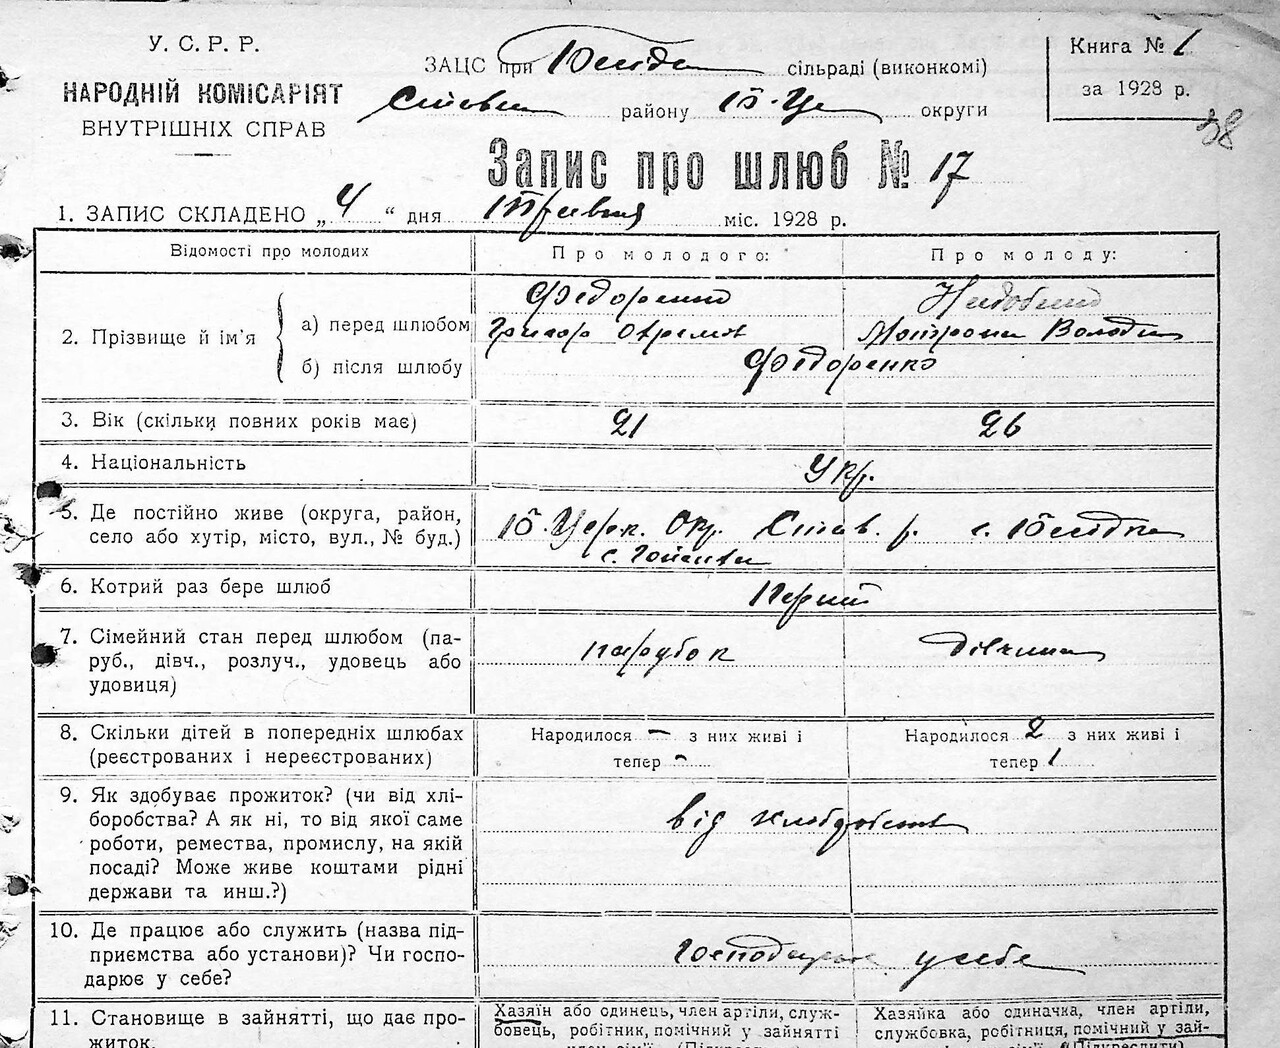 У. С. Р. Р.
НАРОДНІЙ КОМІСАРІЯТ
ВНУТРІШНІХ СПРАВ
ЗАЦС при сільраді (виконкомі)
району Б-Це округи
Книга № 1
за 1928 р.
38
Запис про шлюб № 17
1. ЗАПИС СКЛАДЕНО „ 4 “ дня Травня міс. 1928 р.
Відомості про молодих
Про молодого:
Про молоду:
2. Прізвище й ім'я
а) перед шлюбом
б) після шлюбу
Федоренко
Григор Охремов
Мотрона Володим
Федоренко
3. Вік (скільки повних років має)
21
26
4. Національність
Укр.
5. Де постійно живе (округа, район,
село або хутір, місто, вул., № буд.)
Б. Церк. Окр. Став. р. с.
с.
6. Котрий раз бере шлюб
Перший
7. Сімейний стан перед шлюбом (па-
руб., дівч., розлуч., удовець або
удовиця)
парубок
Дівчина
8. Скільки дітей в попередніх шлюбах
(реєстрованих і нереєстрованих)
Народилося - з них живі і
тепер -
Народилося 2 з них живі і
тепер 1
9. Як здобуває прожиток? (чи від хлі-
боробства? А як ні, то від якої саме
роботи, ремества, промислу, на якій
посаді? Може живе коштами рідні
держави та инш.?)
від хліборобства
10. Де працює або служить (назва під-
приємства або установи)? Чи госпо-
дарює у себе?
Господарює у себе
11. Становище в зайнятті, що дає про-
житок.
Хазяїн або одинець, член артілі, служ-
бовець, робітник, помічний у зайнятті
Хазяйка або одиначка, член артілі,
службовка, робітниця, помічний у зай-